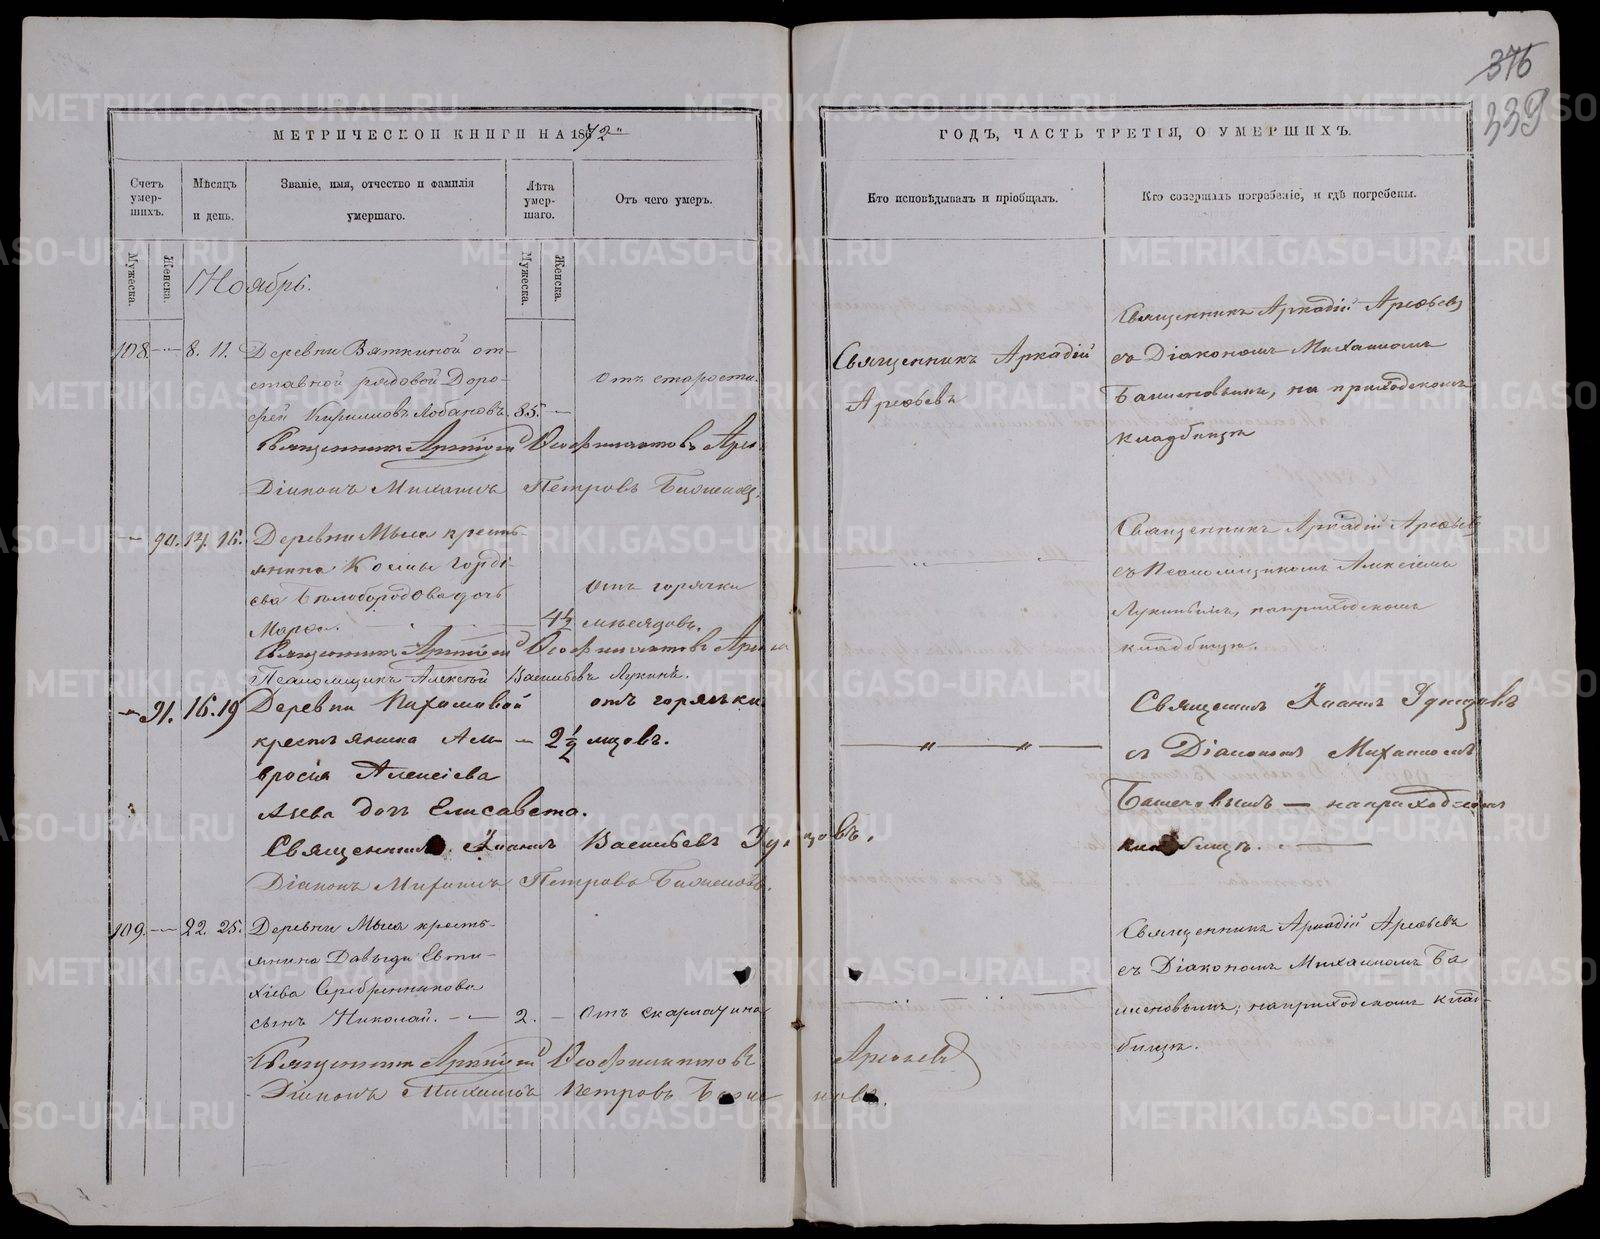 376
339
МЕТРИЧЕСКОЙ КНИГИ НА 1872
ГОДЪ, ЧАСТЬ ТРЕТІЯ, О УМЕРШИХЪ.
Счетъ умерших.
Мѣсяцъ и день.
Званіе, имя, отчество и фамилія умершаго.
Лѣта умершаго.
Отъ чего умеръ.
Кто исповѣдывалъ и пріобщалъ.
Кто совершалъ погребеніе, и гдѣ погребены.
Мужеска.
Женска.
Мужеска.
Женска.
Ноябрь.
108. 8. 11. Деревни Вяткиной от-
ставной рядовой Доро-
фей Кириловъ Лобановъ. 85.
Отъ старости
Священникъ Аркадій
Арефьевъ
Священникъ Аркадій Арефьевъ
съ Діакономъ Михаиломъ
Баженовымъ, на приходскомъ
кладбищѣ
Священникъ Аркадій Феофилактовъ
Діаконъ Михаилъ Петровъ Баженовъ.
90. 14. 16. Деревни Мыса кресть-
янина Космы Горді-
ева Бѣлобородова дочь
Марфа. 4½ мѣсяцовъ.
Отъ горячки
Священникъ Аркадій Арефьевъ
съ Псаломщикомъ Алексіемъ
Лукинымъ, на приходскомъ
кладбищѣ.
Священникъ Аркадій Феофилактовъ
Псаломщикъ Алексѣй Васильевъ Лукинъ.
91. 16. 19 Деревни Пахомовой
крестьянина Ам-
вросія Алексіева
дочь Елисавета.
2½
отъ горячки
Священникъ Іоаннъ
съ Діакономъ Михаиломъ
Баженовымъ — на приходскомъ
кладбищѣ.
Священникъ Іоаннъ Васильевъ
Діаконъ Михаилъ Петровъ Баженовъ.
109. 22. 25. Деревни Мыса кресть-
янина Давыда Евти-
хіева Серебренникова
сынъ Николай. 2. Отъ скарлатина
Священникъ Аркадій Арефьевъ
съ Діакономъ Михаиломъ Ба
женовымъ, на приходскомъ клад-
бищѣ.
Священникъ Аркадій Феофилактовъ Арефьевъ
Діаконъ Михаилъ Петровъ Баженовъ.
METRIKI.GASO-URAL.RU